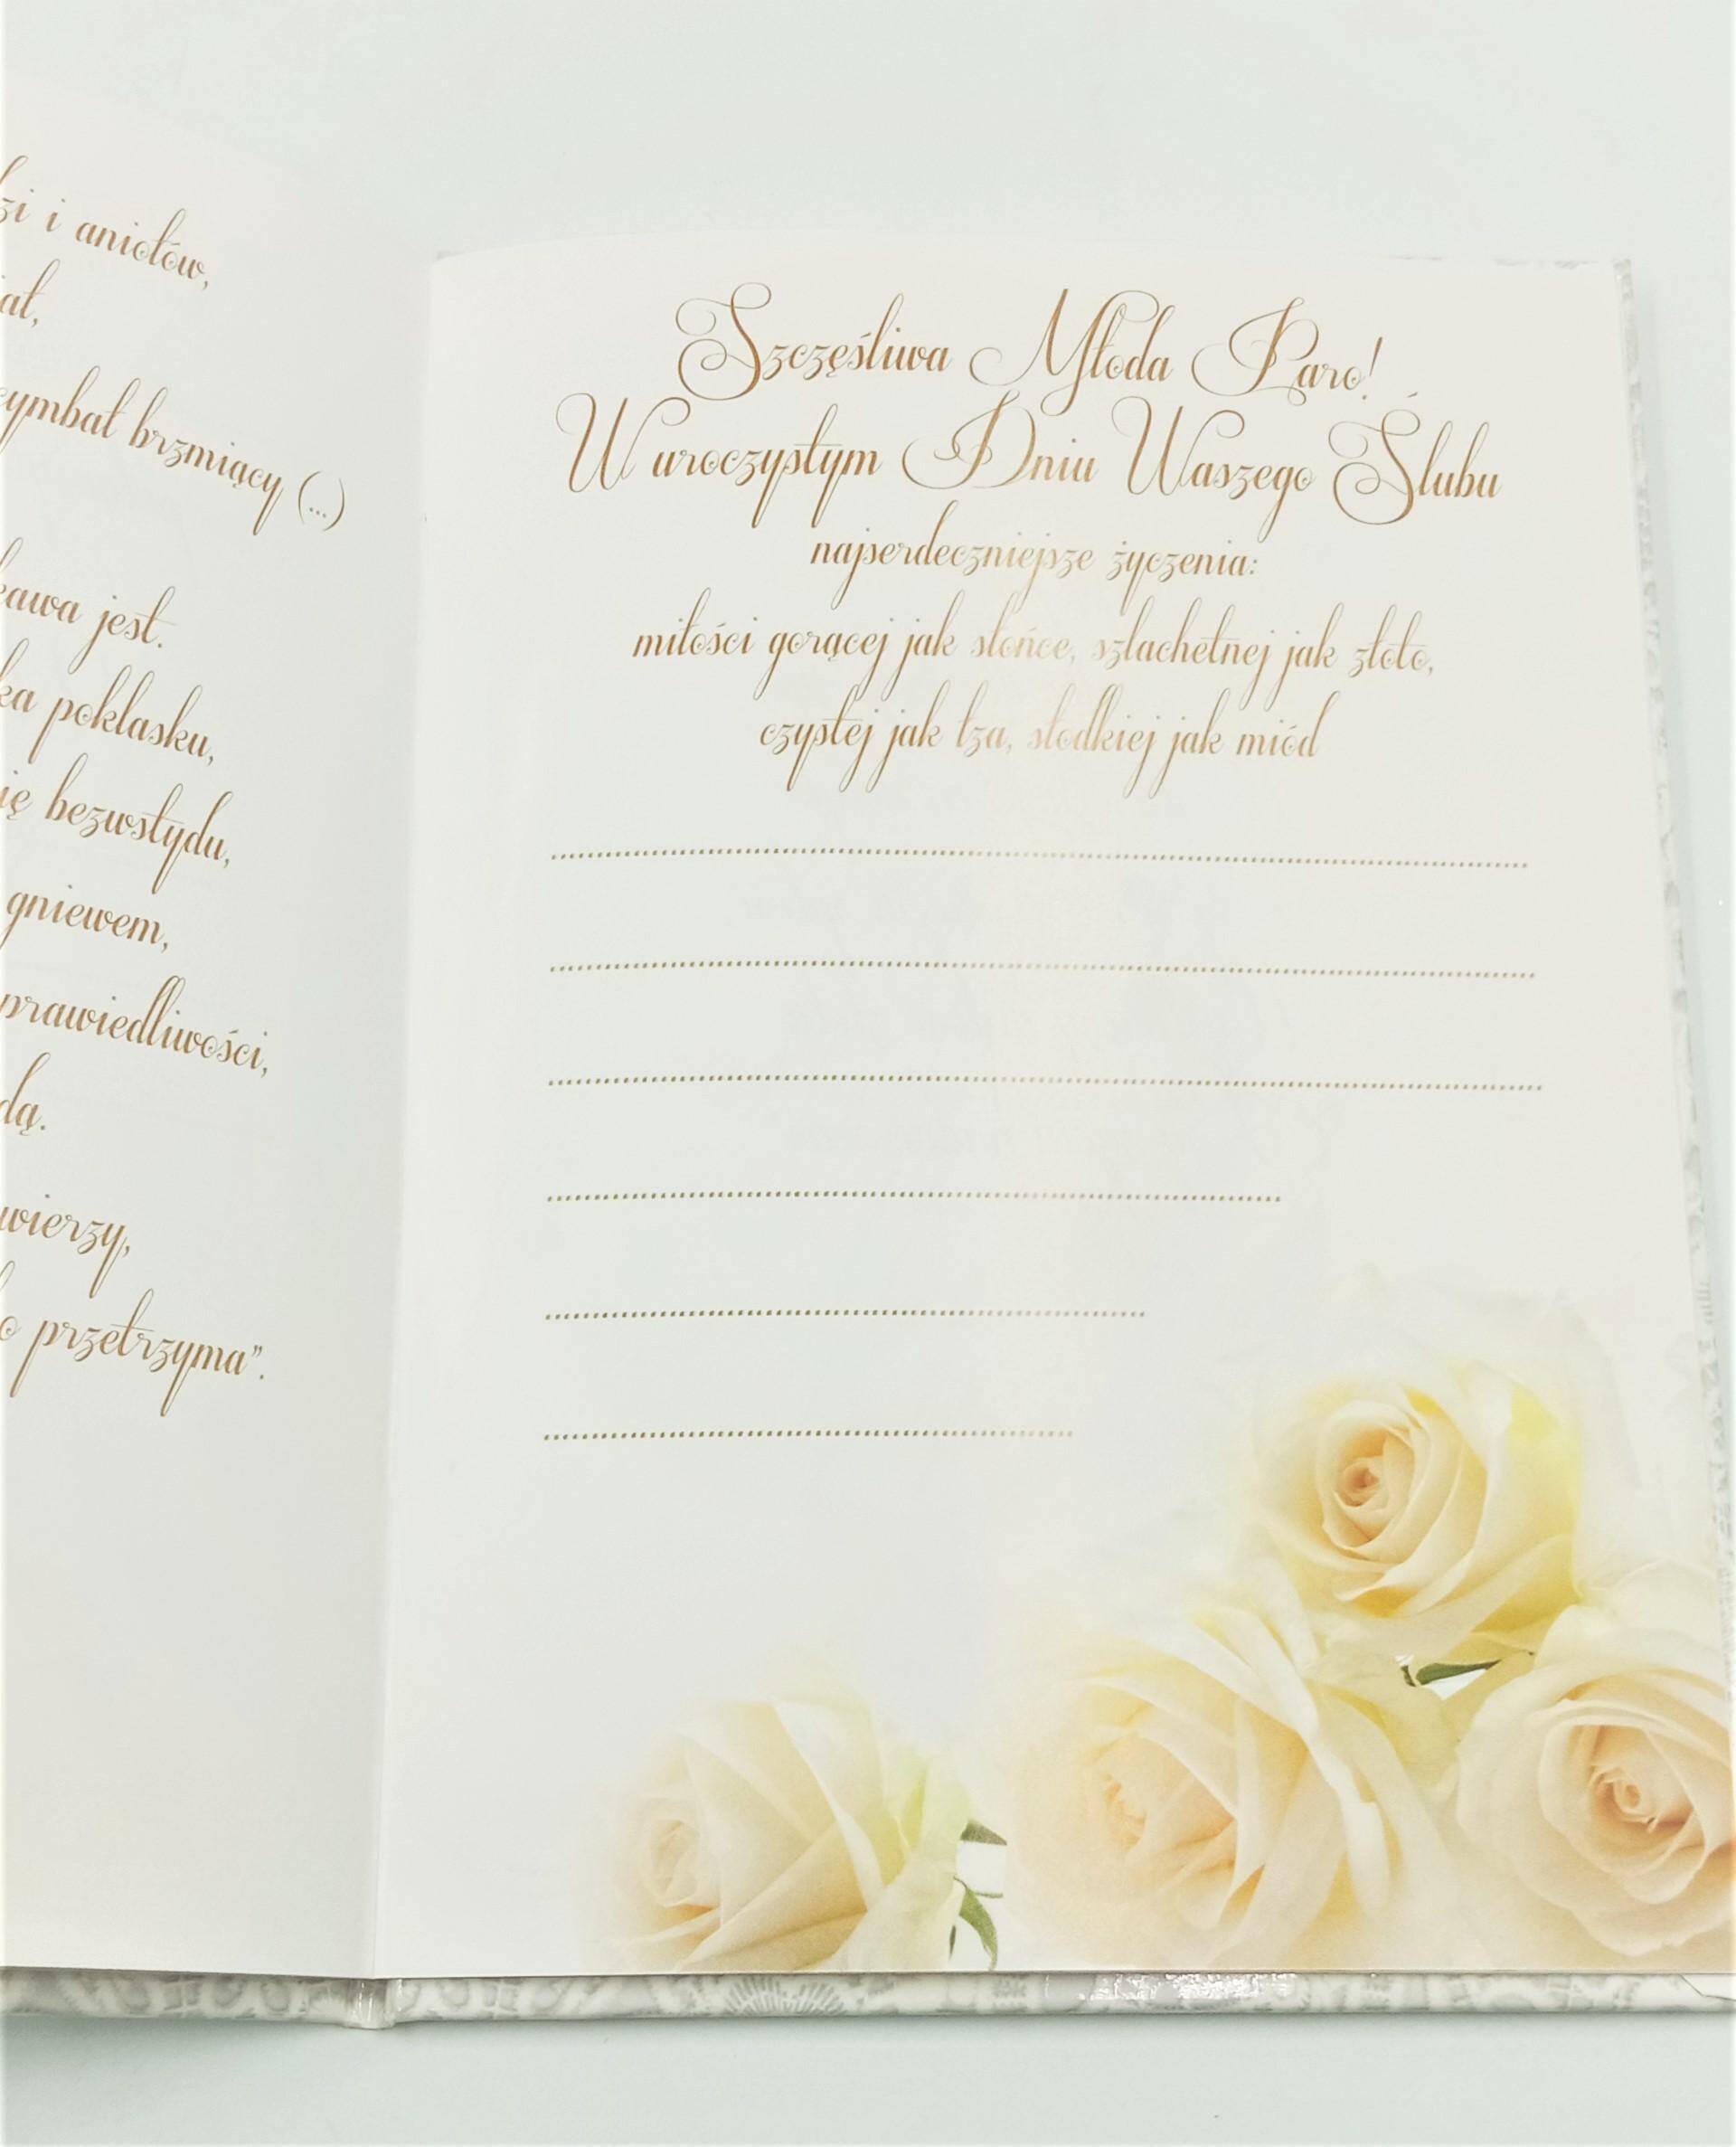 i aniołów,
cymbał brzmiący (...)
jest.
poklasku,
bezwstydu,
gniewem,
wierzy,
przetrzyma”.
Szczęśliwa Młoda Paro!
W uroczystym Dniu Waszego Ślubu
najserdeczniejsze życzenia:
miłości gorącej jak słońce, szlachetnej jak złoto,
czystej jak łza, słodkiej jak miód